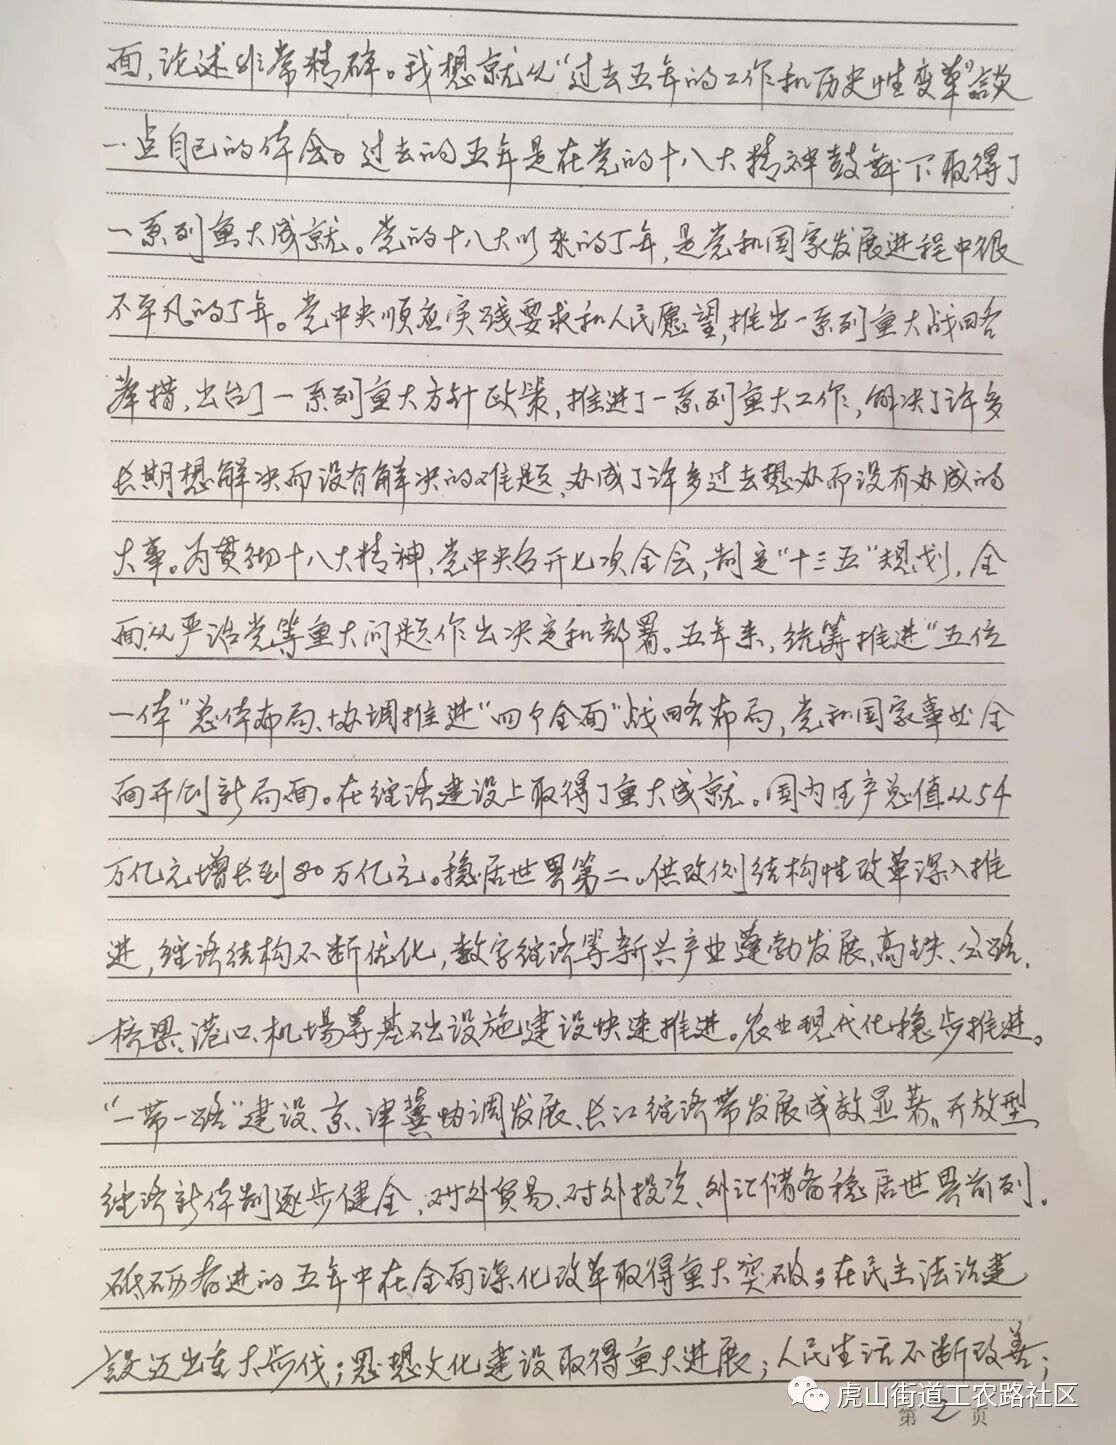 面,论述非常精碎。我想就从“过去五年的工作和历史性变革”談
一点自己的体会。过去的五年是在党的十八大精神鼓舞下取得了
一系列重大成就。党的十八大以来的5年,是党和国家发展进程中很
不平凡的5年。党中央顺应实践要求和人民愿望,推出一系列重大战略
举措,出台了一系列重大方针政策,推进了一系列重大工作,解决了许多
长期想解决而没有解决的难题、办成了许多过去想办而没有办成的
大事。为贯彻十八大精神,党中央召开七次全会,制定“十三五”规划,全
面从严治党等重大问题作出决定和部署。五年来,统筹推进“五位
一体”总体布局、协调推进“四个全面”战略布局,党和国家事业全
面开创新局面。在经济建设上取得了重大成就。国内生产总值从54
万亿元增长到80万亿元。稳居世界第二。供改侧结构性改革深入推
进,经济结构不断优化,数字经济等新兴产业蓬勃发展、高铁、公路、
桥梁、港口、机場等基础设施建设快速推进。农业现代化稳步推进。
“一带一路”建设、京、津冀协调发展、长江经济带发展成效显著。开放型
经济新体制逐步健全,对外贸易、对外投资、外汇储备稳居世界前列。
砥砺奋进的五年中在全面深化改革取得重大突破;在民主法治建
設迈出重大步伐;思想文化建设取得重大进展;人民生活不断改善;
虎山街道工农路社区
第2页